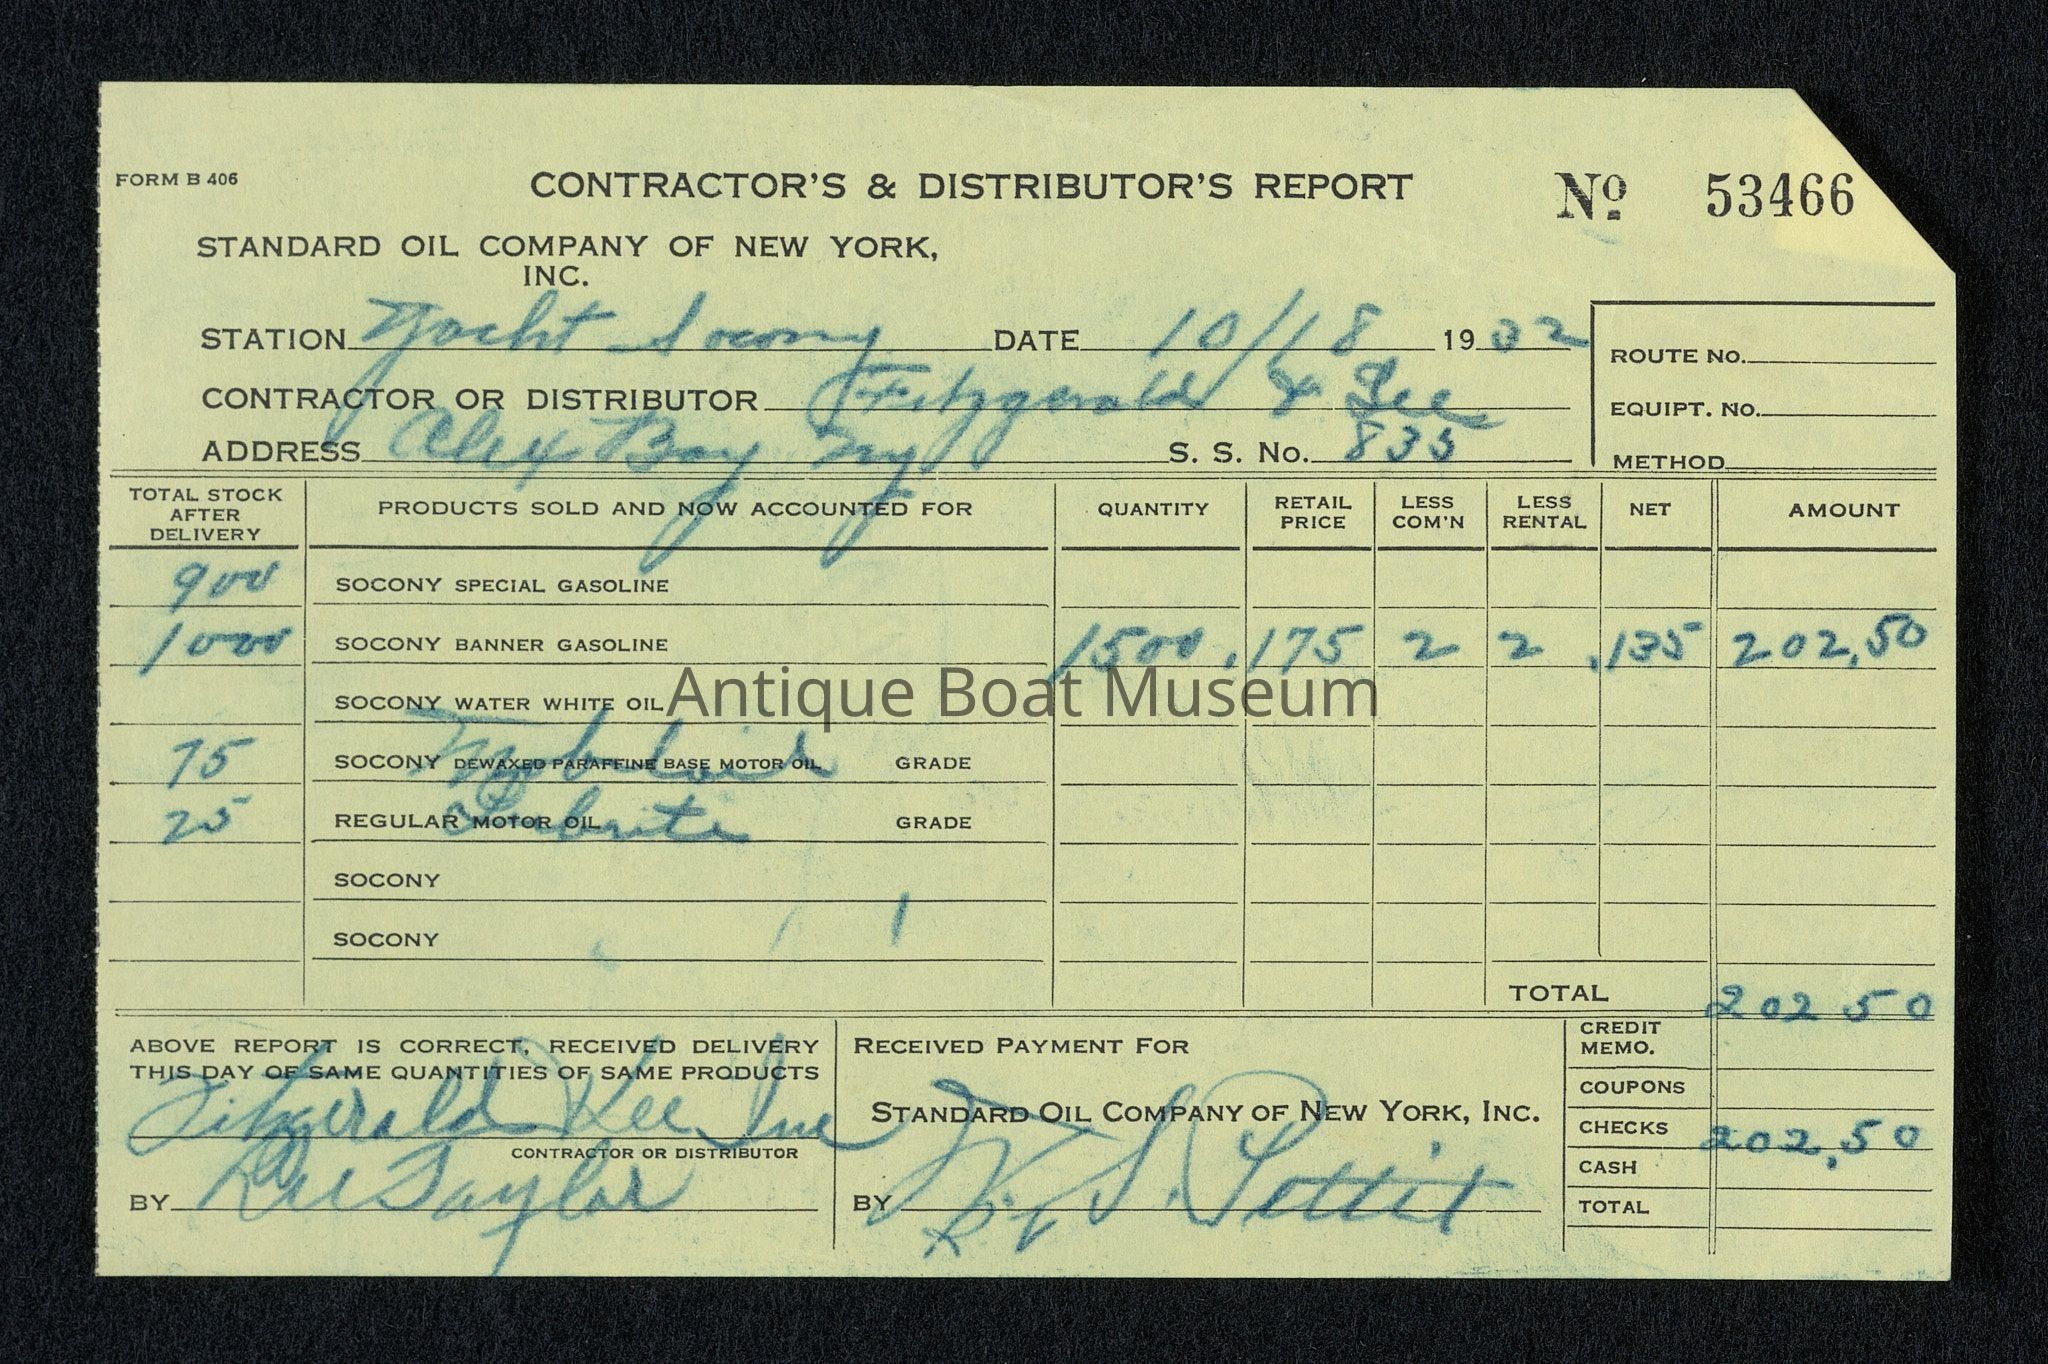 FORM B 406
CONTRACTOR'S & DISTRIBUTOR'S REPORT
No 53466
STANDARD OIL COMPANY OF NEW YORK,
INC.
STATION Yacht Socony DATE 10/18 1932
ROUTE NO.
CONTRACTOR OR DISTRIBUTOR Fitzgerald & Lee
EQUIPT. NO.
ADDRESS Alex Bay Ny S. S. No. 835
METHOD
TOTAL STOCK AFTER DELIVERY PRODUCTS SOLD AND NOW ACCOUNTED FOR QUANTITY RETAIL PRICE LESS COM'N LESS RENTAL NET AMOUNT
900 SOCONY SPECIAL GASOLINE
1000 SOCONY BANNER GASOLINE 1500 .175 2 2 .135 202.50
SOCONY WATER WHITE OIL
Antique Boat Museum
75 SOCONY DEWAXED PARAFFINE BASE MOTOR OIL GRADE
25 REGULAR MOTOR OIL GRADE
SOCONY
SOCONY
TOTAL 202 50
ABOVE REPORT IS CORRECT, RECEIVED DELIVERY
THIS DAY OF SAME QUANTITIES OF SAME PRODUCTS
Fitzgerald Lee Inc
CONTRACTOR OR DISTRIBUTOR
BY Lee Taylor
RECEIVED PAYMENT FOR
STANDARD OIL COMPANY OF NEW YORK, INC.
BY S. Pettit
CREDIT MEMO.
COUPONS
CHECKS 202.50
CASH
TOTAL